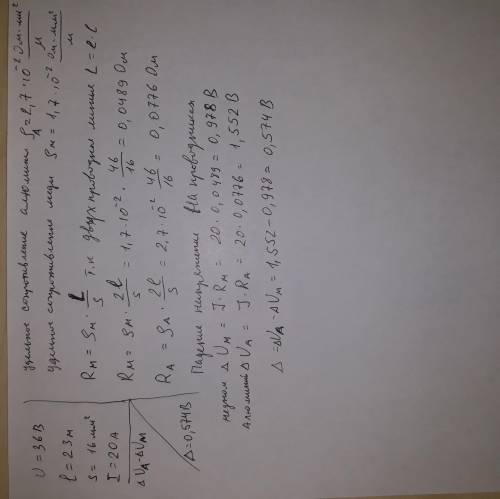 U = 36 В
l = 23 м
S = 16 мм²
I = 20 А
ΔU_A - ΔU_M
Δ = 0,574 В
удельное сопротивление алюмин ρ_A = 2,7·10⁻² Ом·мм²/м
удельное сопротивление меди ρ_M = 1,7·10⁻² Ом·мм²/м
R_M = ρ_M · L/S т.к двухпроводная линия L = 2·l
R_M = ρ_M · 2l/S = 1,7·10⁻² · 46/16 = 0,0489 Ом
R_A = ρ_A · 2l/S = 2,7·10⁻² 46/16 = 0,0776 Ом
Падение напряжения на проводниках
медном ΔU_M = I·R_M = 20·0,0489 = 0,978 В
Алюмин ΔU_A = I·R_A = 20·0,0776 = 1,552 В
Δ = ΔU_A - ΔU_M = 1,552 - 0,978 = 0,574 В